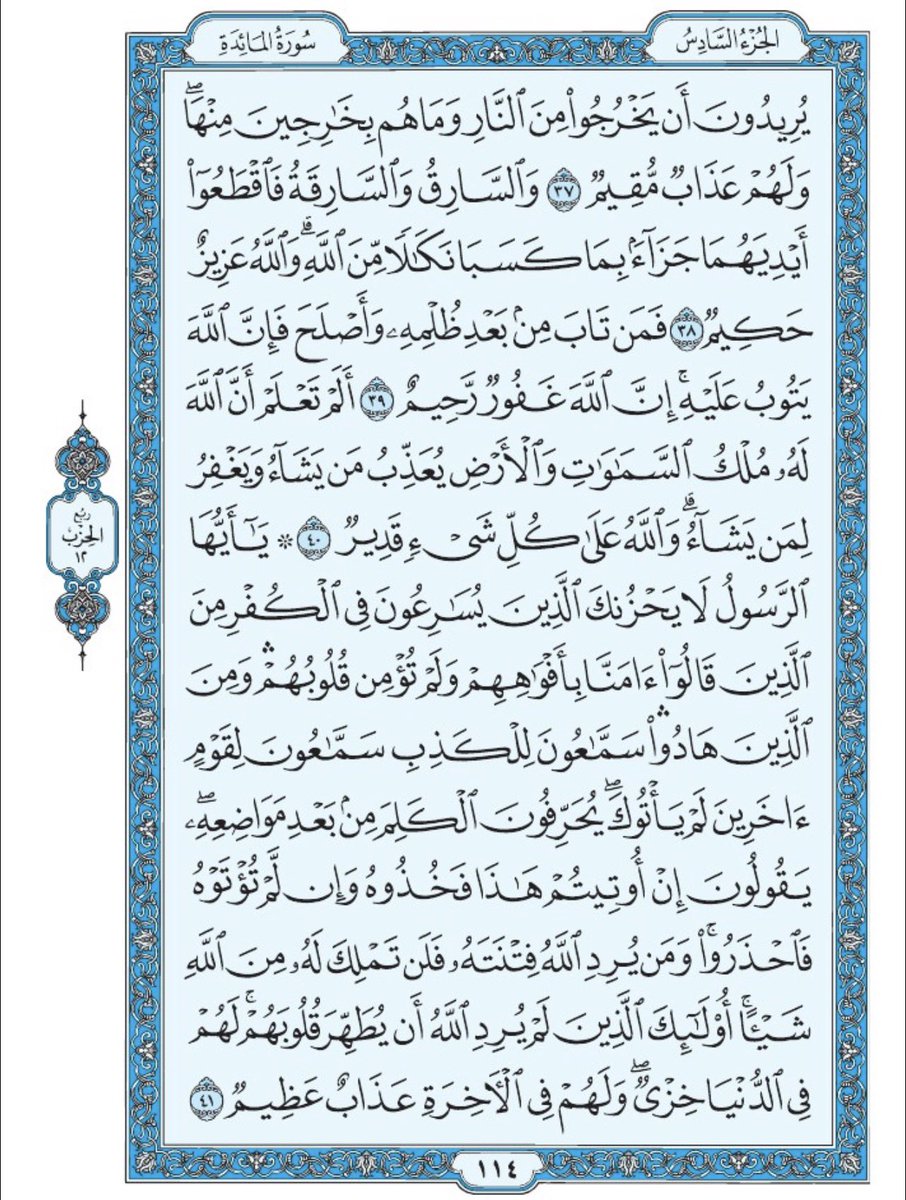 الجُزْءُ السَّادِسُ
سُورَةُ المَائِدَةِ
يُرِيدُونَ أَن يَخْرُجُوا۟ مِنَ ٱلنَّارِ وَمَا هُم بِخَـٰرِجِينَ مِنْهَاۖ
وَلَهُمْ عَذَابٌ مُّقِيمٌ ٣٧ وَٱلسَّارِقُ وَٱلسَّارِقَةُ فَٱقْطَعُوٓا۟
أَيْدِيَهُمَا جَزَآءَۢ بِمَا كَسَبَا نَكَـٰلًا مِّنَ ٱللَّهِۗ وَٱللَّهُ عَزِيزٌ
حَكِيمٌ ٣٨ فَمَن تَابَ مِنۢ بَعْدِ ظُلْمِهِۦ وَأَصْلَحَ فَإِنَّ ٱللَّهَ
يَتُوبُ عَلَيْهِۚ إِنَّ ٱللَّهَ غَفُورٌ رَّحِيمٌ ٣٩ أَلَمْ تَعْلَمْ أَنَّ ٱللَّهَ
لَهُۥ مُلْكُ ٱلسَّمَـٰوَٰتِ وَٱلْأَرْضِ يُعَذِّبُ مَن يَشَآءُ وَيَغْفِرُ
لِمَن يَشَآءُۗ وَٱللَّهُ عَلَىٰ كُلِّ شَىْءٍ قَدِيرٌ ٤٠ ۞ يَـٰٓأَيُّهَا
ٱلرَّسُولُ لَا يَحْزُنكَ ٱلَّذِينَ يُسَـٰرِعُونَ فِى ٱلْكُفْرِ مِنَ
ٱلَّذِينَ قَالُوٓا۟ ءَامَنَّا بِأَفْوَٰهِهِمْ وَلَمْ تُؤْمِن قُلُوبُهُمْۛ وَمِنَ
ٱلَّذِينَ هَادُوا۟ۛ سَمَّـٰعُونَ لِلْكَذِبِ سَمَّـٰعُونَ لِقَوْمٍ
ءَاخَرِينَ لَمْ يَأْتُوكَۖ يُحَرِّفُونَ ٱلْكَلِمَ مِنۢ بَعْدِ مَوَاضِعِهِۦۖ
يَقُولُونَ إِنْ أُوتِيتُمْ هَـٰذَا فَخُذُوهُ وَإِن لَّمْ تُؤْتَوْهُ
فَٱحْذَرُوا۟ۚ وَمَن يُرِدِ ٱللَّهُ فِتْنَتَهُۥ فَلَن تَمْلِكَ لَهُۥ مِنَ ٱللَّهِ
شَيْـًٔاۚ أُو۟لَـٰٓئِكَ ٱلَّذِينَ لَمْ يُرِدِ ٱللَّهُ أَن يُطَهِّرَ قُلُوبَهُمْۚ لَهُمْ
فِى ٱلدُّنْيَا خِزْىٌۖ وَلَهُمْ فِى ٱلْـَٔاخِرَةِ عَذَابٌ عَظِيمٌ ٤١
رُبْعُ
الحِزْبِ
١٢
١١٤